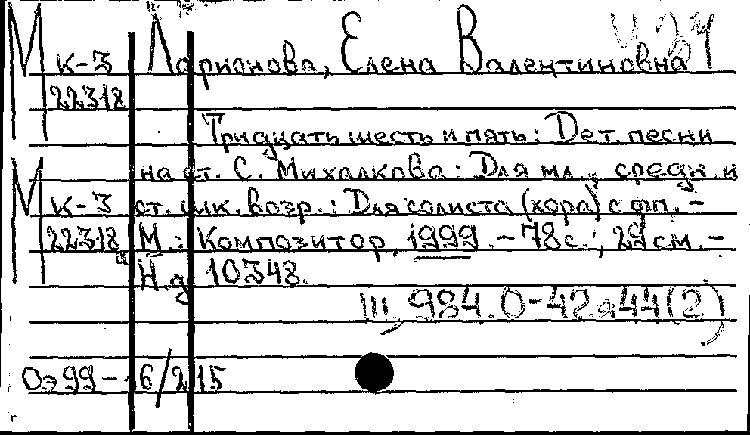 М к-3 Ларионова, Елена Валентиновна
22318
Тридцать шесть и пять: Дет. песни
на ст. С. Михалкова: Для мл., средн. и
М к-3 ст. шк. возр.: Для солиста (хора) с фп. –
22318 М.: Композитор, 1999. – 78 с.; 29 см. –
Н.д. 10348.
Ш 984.0-42 я44(2)
Оэ99-16/215